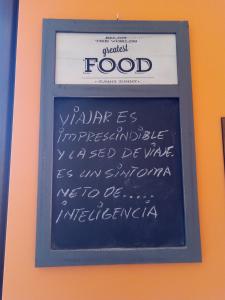 THE WORLDS
greatest
FOOD
VIAJAR ES
IMPRESCINDIBLE
Y LA SED DE VIAJE.
ES UN SINTOMA
NETO DE.....
INTELIGENCIA